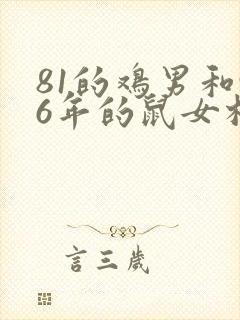 81的鸡男和
6年的鼠女
言三岁